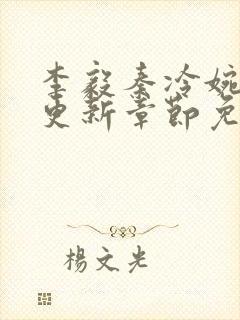 李毅秦冷婉
更新章节免
楊文光